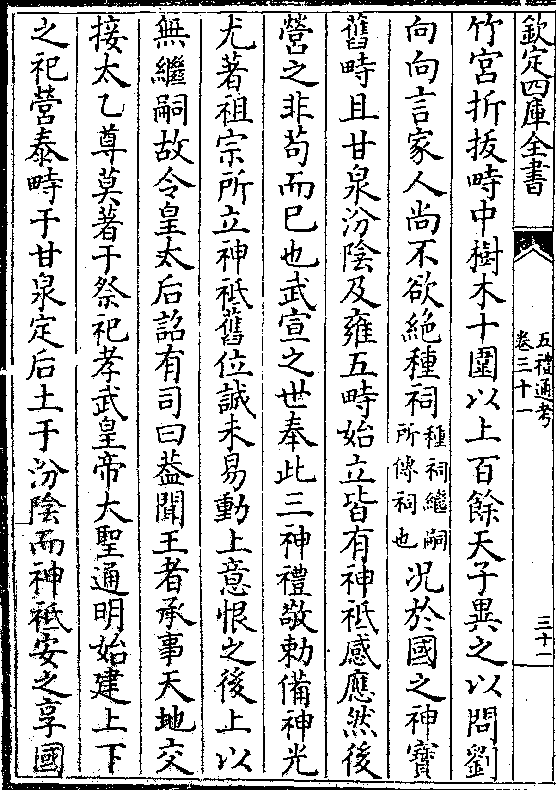 欽定四庫全書
五禮通考
卷三十一
三十二
竹宮折拔畤中樹木十圍以上百餘天子異之以問劉
向向言家人尚不欲絶種祠
種祠繼嗣
所傳祠也
况於國之神寶
舊畤且甘泉汾陰及雍五畤始立皆有神祗感應然後
營之非苟而已也武宣之世奉此三神禮敬勅備神光
尤著祖宗所立神祗舊位誠未易動上意恨之後上以
無繼嗣故令皇太后詔有司曰葢聞王者承事天地交
接太乙尊莫著于祭祀孝武皇帝大聖通明始建上下
之祀營泰畤于甘泉定后土于汾陰而神祗安之享國